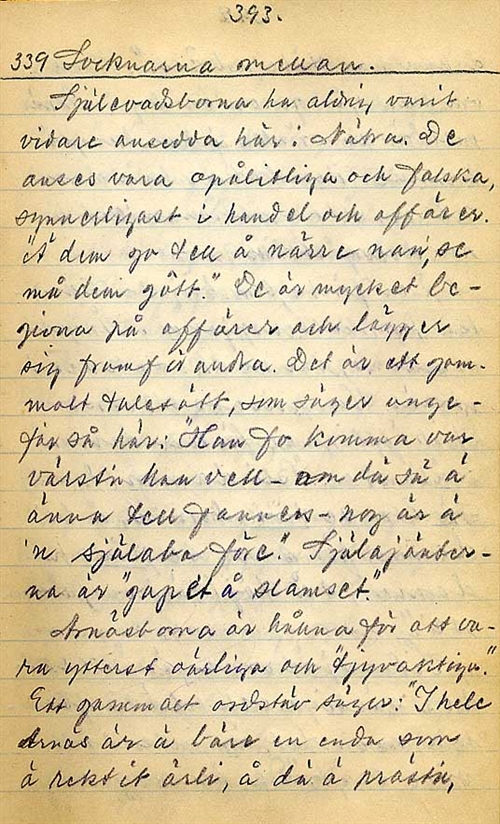 393.
339 Socknarna mellan.
Själevadsborna ha aldrig varit
vidare ansedda här i Nätra. De
anses vara opålitliga och falska,
synnerligast i handel och affärer.
"Å dem go tell å närre nan, se
må dem gött." De är mycket be-
givna på affärer och lägger
sig framför andra. Det är ett gam-
malt talesätt, som säger unge-
fär så här: "Han fo komma var
värst'n han vell - om då så å
änna tell fanners - nog är å
'n själabo före". Själajänter-
na är "gapet å slamset".
Arnäsborna är kända för att va-
ra ytterst oärliga och "tjyvaktiga."
Ett gammalt ordstäv säger: "I hele
Arnäs är å bare en enda som
å rektit ärli, å då å präst'n,